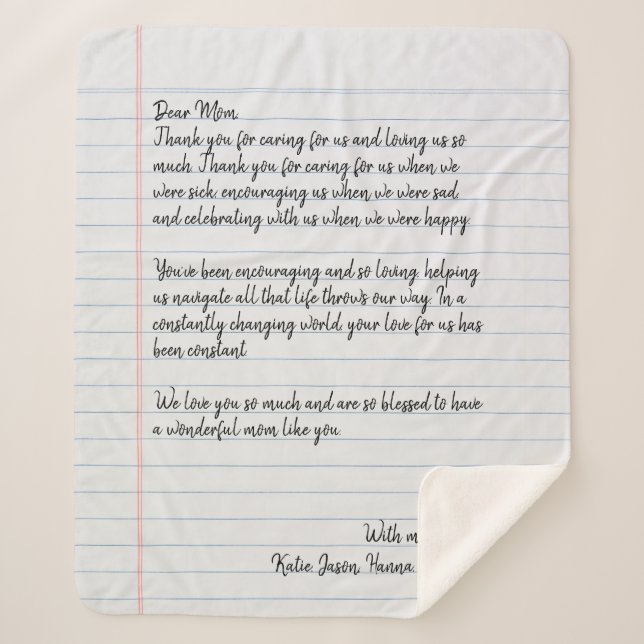 Dear Mom,
Thank you for caring for us and loving us so
much. Thank you for caring for us when we
were sick, encouraging us when we were sad,
and celebrating with us when we were happy.
You've been encouraging and so loving, helping
us navigate all that life throws our way. In a
constantly changing world, your love for us has
been constant.
We love you so much and are so blessed to have
a wonderful mom like you.
With
Katie, Jason, Hanna,